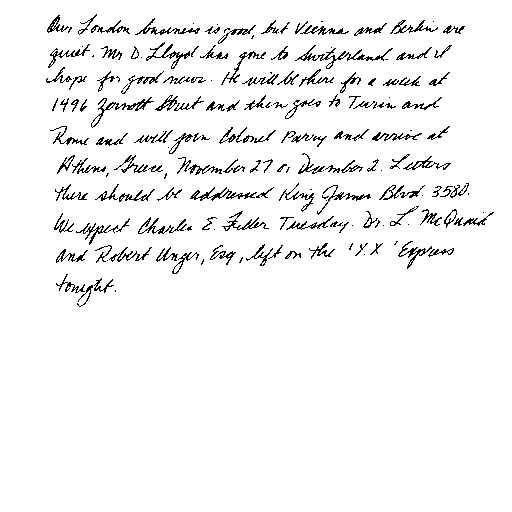 Our London business is good, but Vienna and Berlin are
quiet. Mr D. Lloyd has gone to Switzerland and I
hope for good news. He will be there for a week at
1496 Zermott Street and then goes to Turin and
Rome and will join Colonel Parry and arrive at
Athens, Greece, November 27 or December 2. Letters
there should be addressed King James Blvd. 3580.
We expect Charles E. Fuller Tuesday. Dr. L. McQuaid
and Robert Unger, Esq, left on the 'Y.X' Express
tonight.